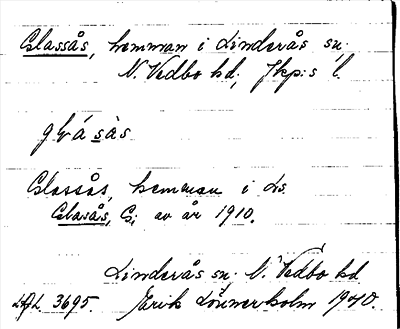 Glassås, hemman i Linderås sn.
N. Vedbo hd, Jkp:s l.
glásàs
Glassås, hemman i Ls
Glasås, G; av år 1910.
Linderås sn. N. Vedbo hd
3695. Erik Lönnerholm 1940.